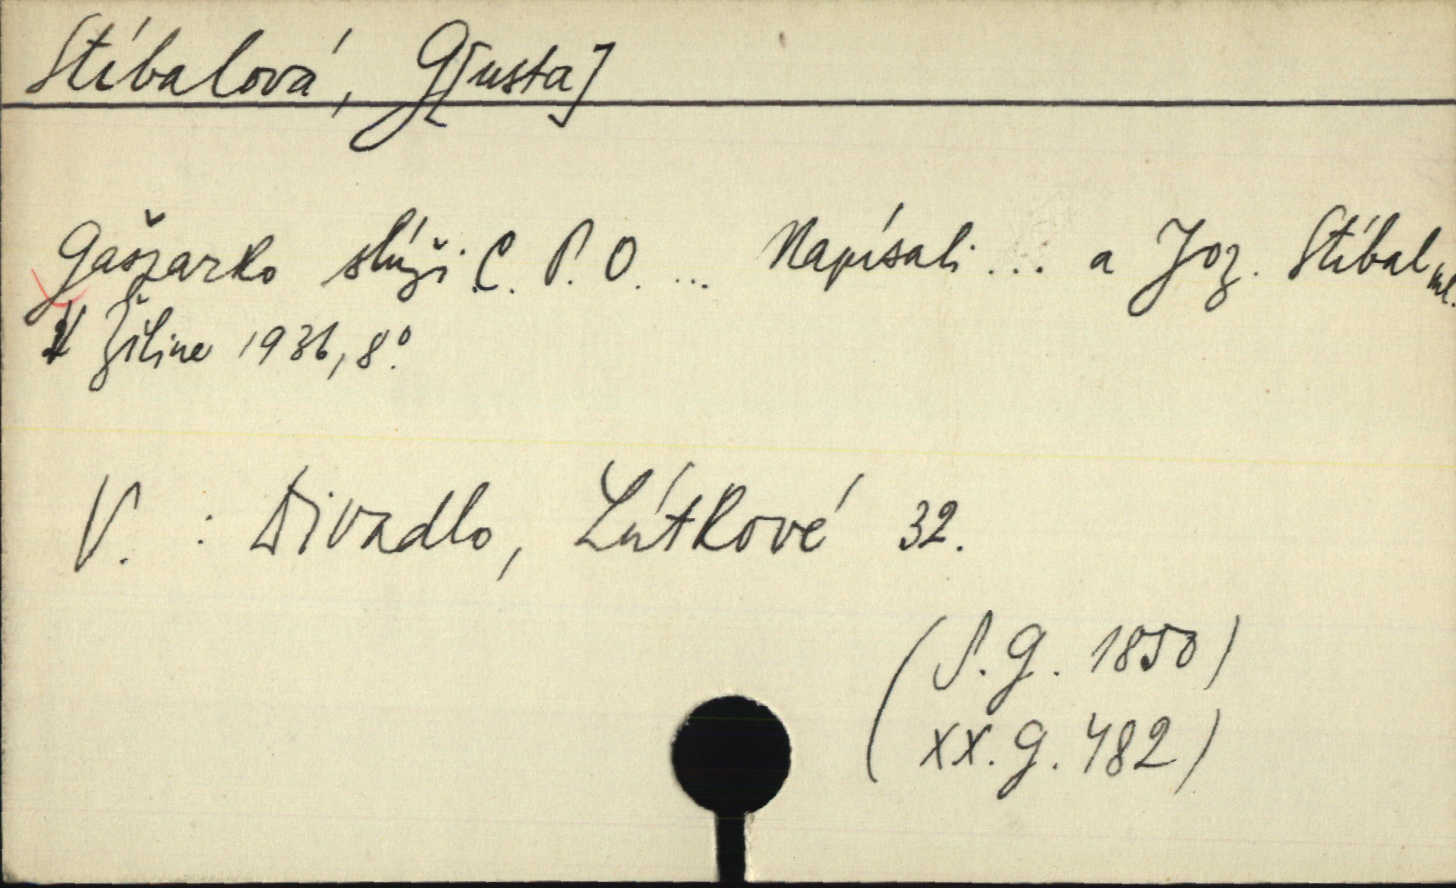 Stíbalová, G[usta]
Gašparko slúži C. P. O. ... Napísali ... a Joz. Stíbal ml.
V Žiline 1936, 8°.
V. : Divadlo, Lútkové 32.
(S. G. 1850)
(XX. G. 482)